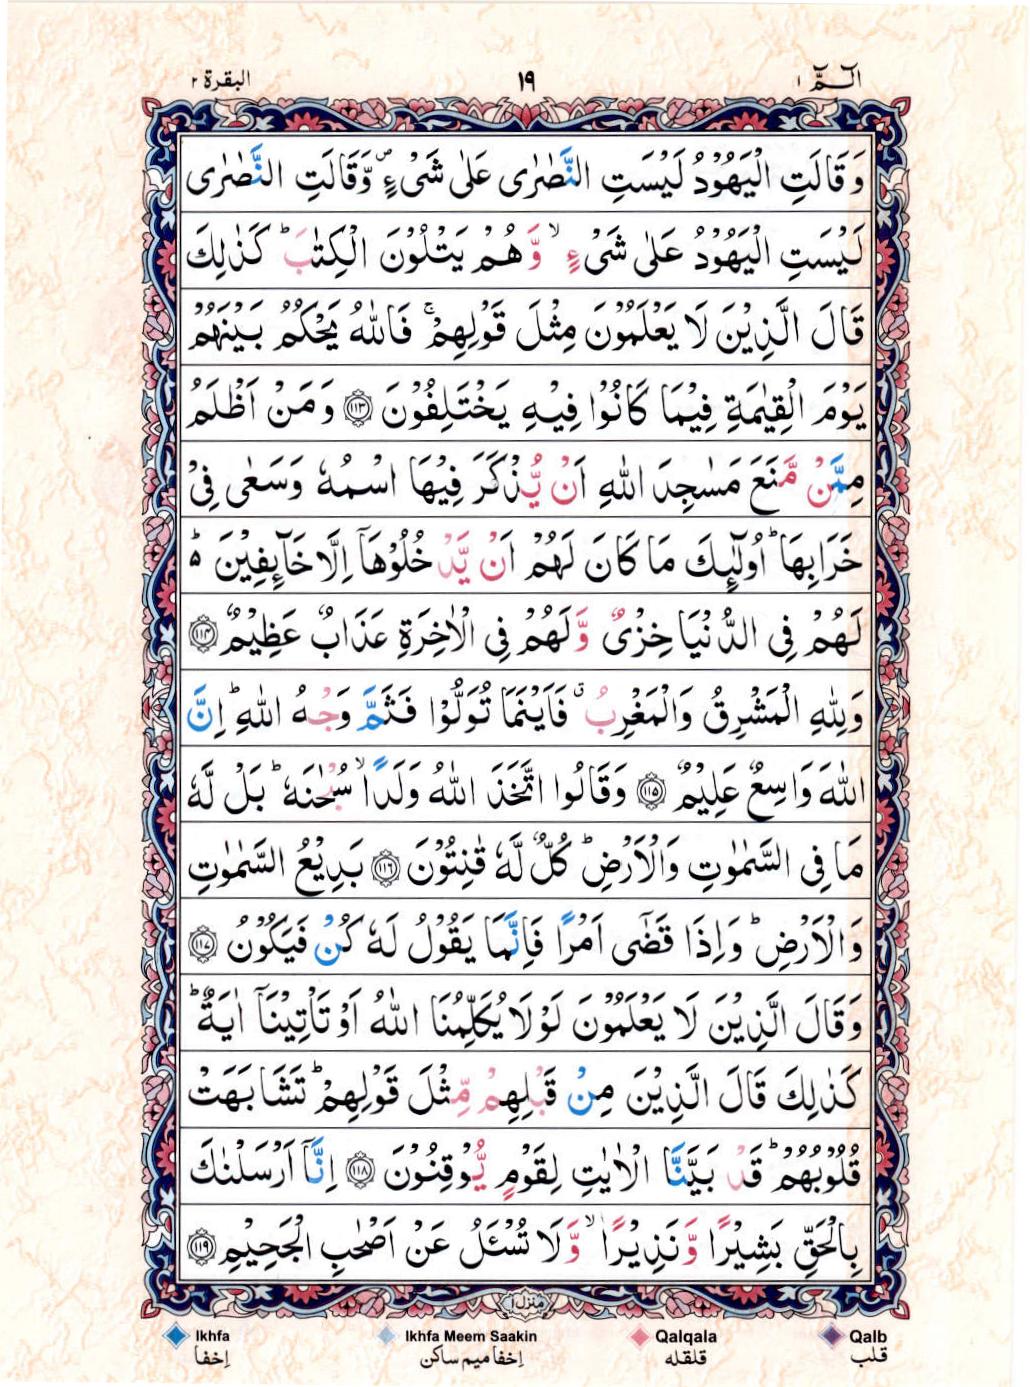 الٓمّٓ ١ ١٩ البقرة ٢
وَقَالَتِ الْيَهُوْدُ لَيْسَتِ النَّصٰرٰى عَلٰى شَىْءٍ ۪ وَّقَالَتِ النَّصٰرٰى
لَيْسَتِ الْيَهُوْدُ عَلٰى شَىْءٍ ۙ وَّهُمْ يَتْلُوْنَ الْكِتٰبَ ؕ كَذٰلِكَ
قَالَ الَّذِيْنَ لَا يَعْلَمُوْنَ مِثْلَ قَوْلِهِمْ ۚ فَاللّٰهُ يَحْكُمُ بَيْنَهُمْ
يَوْمَ الْقِيٰمَةِ فِيْمَا كَانُوْا فِيْهِ يَخْتَلِفُوْنَ ﴿١١٣﴾ وَمَنْ اَظْلَمُ
مِمَّنْ مَّنَعَ مَسٰجِدَ اللّٰهِ اَنْ يُّذْكَرَ فِيْهَا اسْمُهٗ وَسَعٰى فِىْ
خَرَابِهَا ؕ اُولٰٓئِكَ مَا كَانَ لَهُمْ اَنْ يَّدْخُلُوْهَاۤ اِلَّا خَآئِفِيْنَ ۬ؕ
لَهُمْ فِى الدُّنْيَا خِزْىٌ وَّلَهُمْ فِى الْاٰخِرَةِ عَذَابٌ عَظِيْمٌ ﴿١١٤﴾
وَلِلّٰهِ الْمَشْرِقُ وَالْمَغْرِبُ ۗ فَاَيْنَمَا تُوَلُّوْا فَثَمَّ وَجْهُ اللّٰهِ ؕ اِنَّ
اللّٰهَ وَاسِعٌ عَلِيْمٌ ﴿١١٥﴾ وَقَالُوا اتَّخَذَ اللّٰهُ وَلَدًا ۙ سُبْحٰنَهٗ ؕ بَلْ لَّهٗ
مَا فِى السَّمٰوٰتِ وَالْاَرْضِ ؕ كُلٌّ لَّهٗ قٰنِتُوْنَ ﴿١١٦﴾ بَدِيْعُ السَّمٰوٰتِ
وَالْاَرْضِ ؕ وَاِذَا قَضٰٓى اَمْرًا فَاِنَّمَا يَقُوْلُ لَهٗ كُنْ فَيَكُوْنُ ﴿١١٧﴾
وَقَالَ الَّذِيْنَ لَا يَعْلَمُوْنَ لَوْلَا يُكَلِّمُنَا اللّٰهُ اَوْ تَاْتِيْنَاۤ اٰيَةٌ ؕ
كَذٰلِكَ قَالَ الَّذِيْنَ مِنْ قَبْلِهِمْ مِّثْلَ قَوْلِهِمْ ؕ تَشَابَهَتْ
قُلُوْبُهُمْ ؕ قَدْ بَيَّنَّا الْاٰيٰتِ لِقَوْمٍ يُّوْقِنُوْنَ ﴿١١٨﴾ اِنَّاۤ اَرْسَلْنٰكَ
بِالْحَقِّ بَشِيْرًا وَّنَذِيْرًا ۙ وَّلَا تُسْـَٔلُ عَنْ اَصْحٰبِ الْجَحِيْمِ ﴿١١٩﴾
منزل ١
Ikhfa Ikhfa Meem Saakin Qalqala Qalb
اِخفا اِخفا میم ساکن قلقله قلب